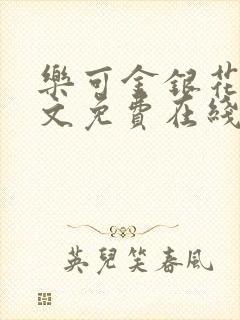 樂可金銀花
文免費在綫
英兒笑春風